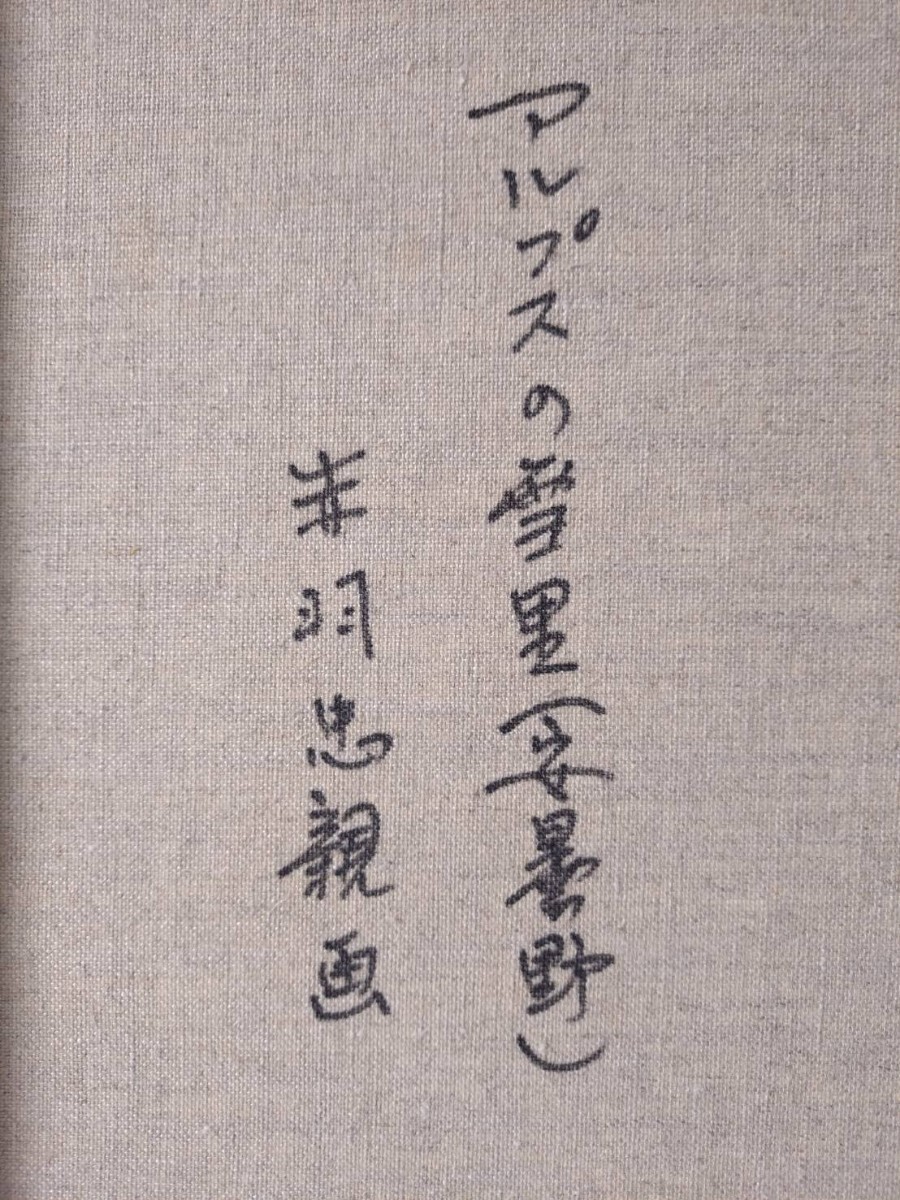 アルプスの雪里(安曇野)
赤羽忠親画